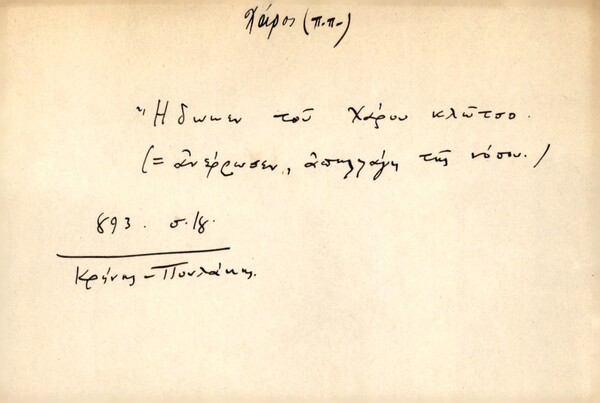 Χάρος (π.π.)
"Ηδωκεν τοῦ Χάρου κλῶτσο.
(= ἀνέρρωσεν, ἀπηλλάγη τῆς νόσου.)
893. σ.18.
Κρήνης - Πουλάκης.